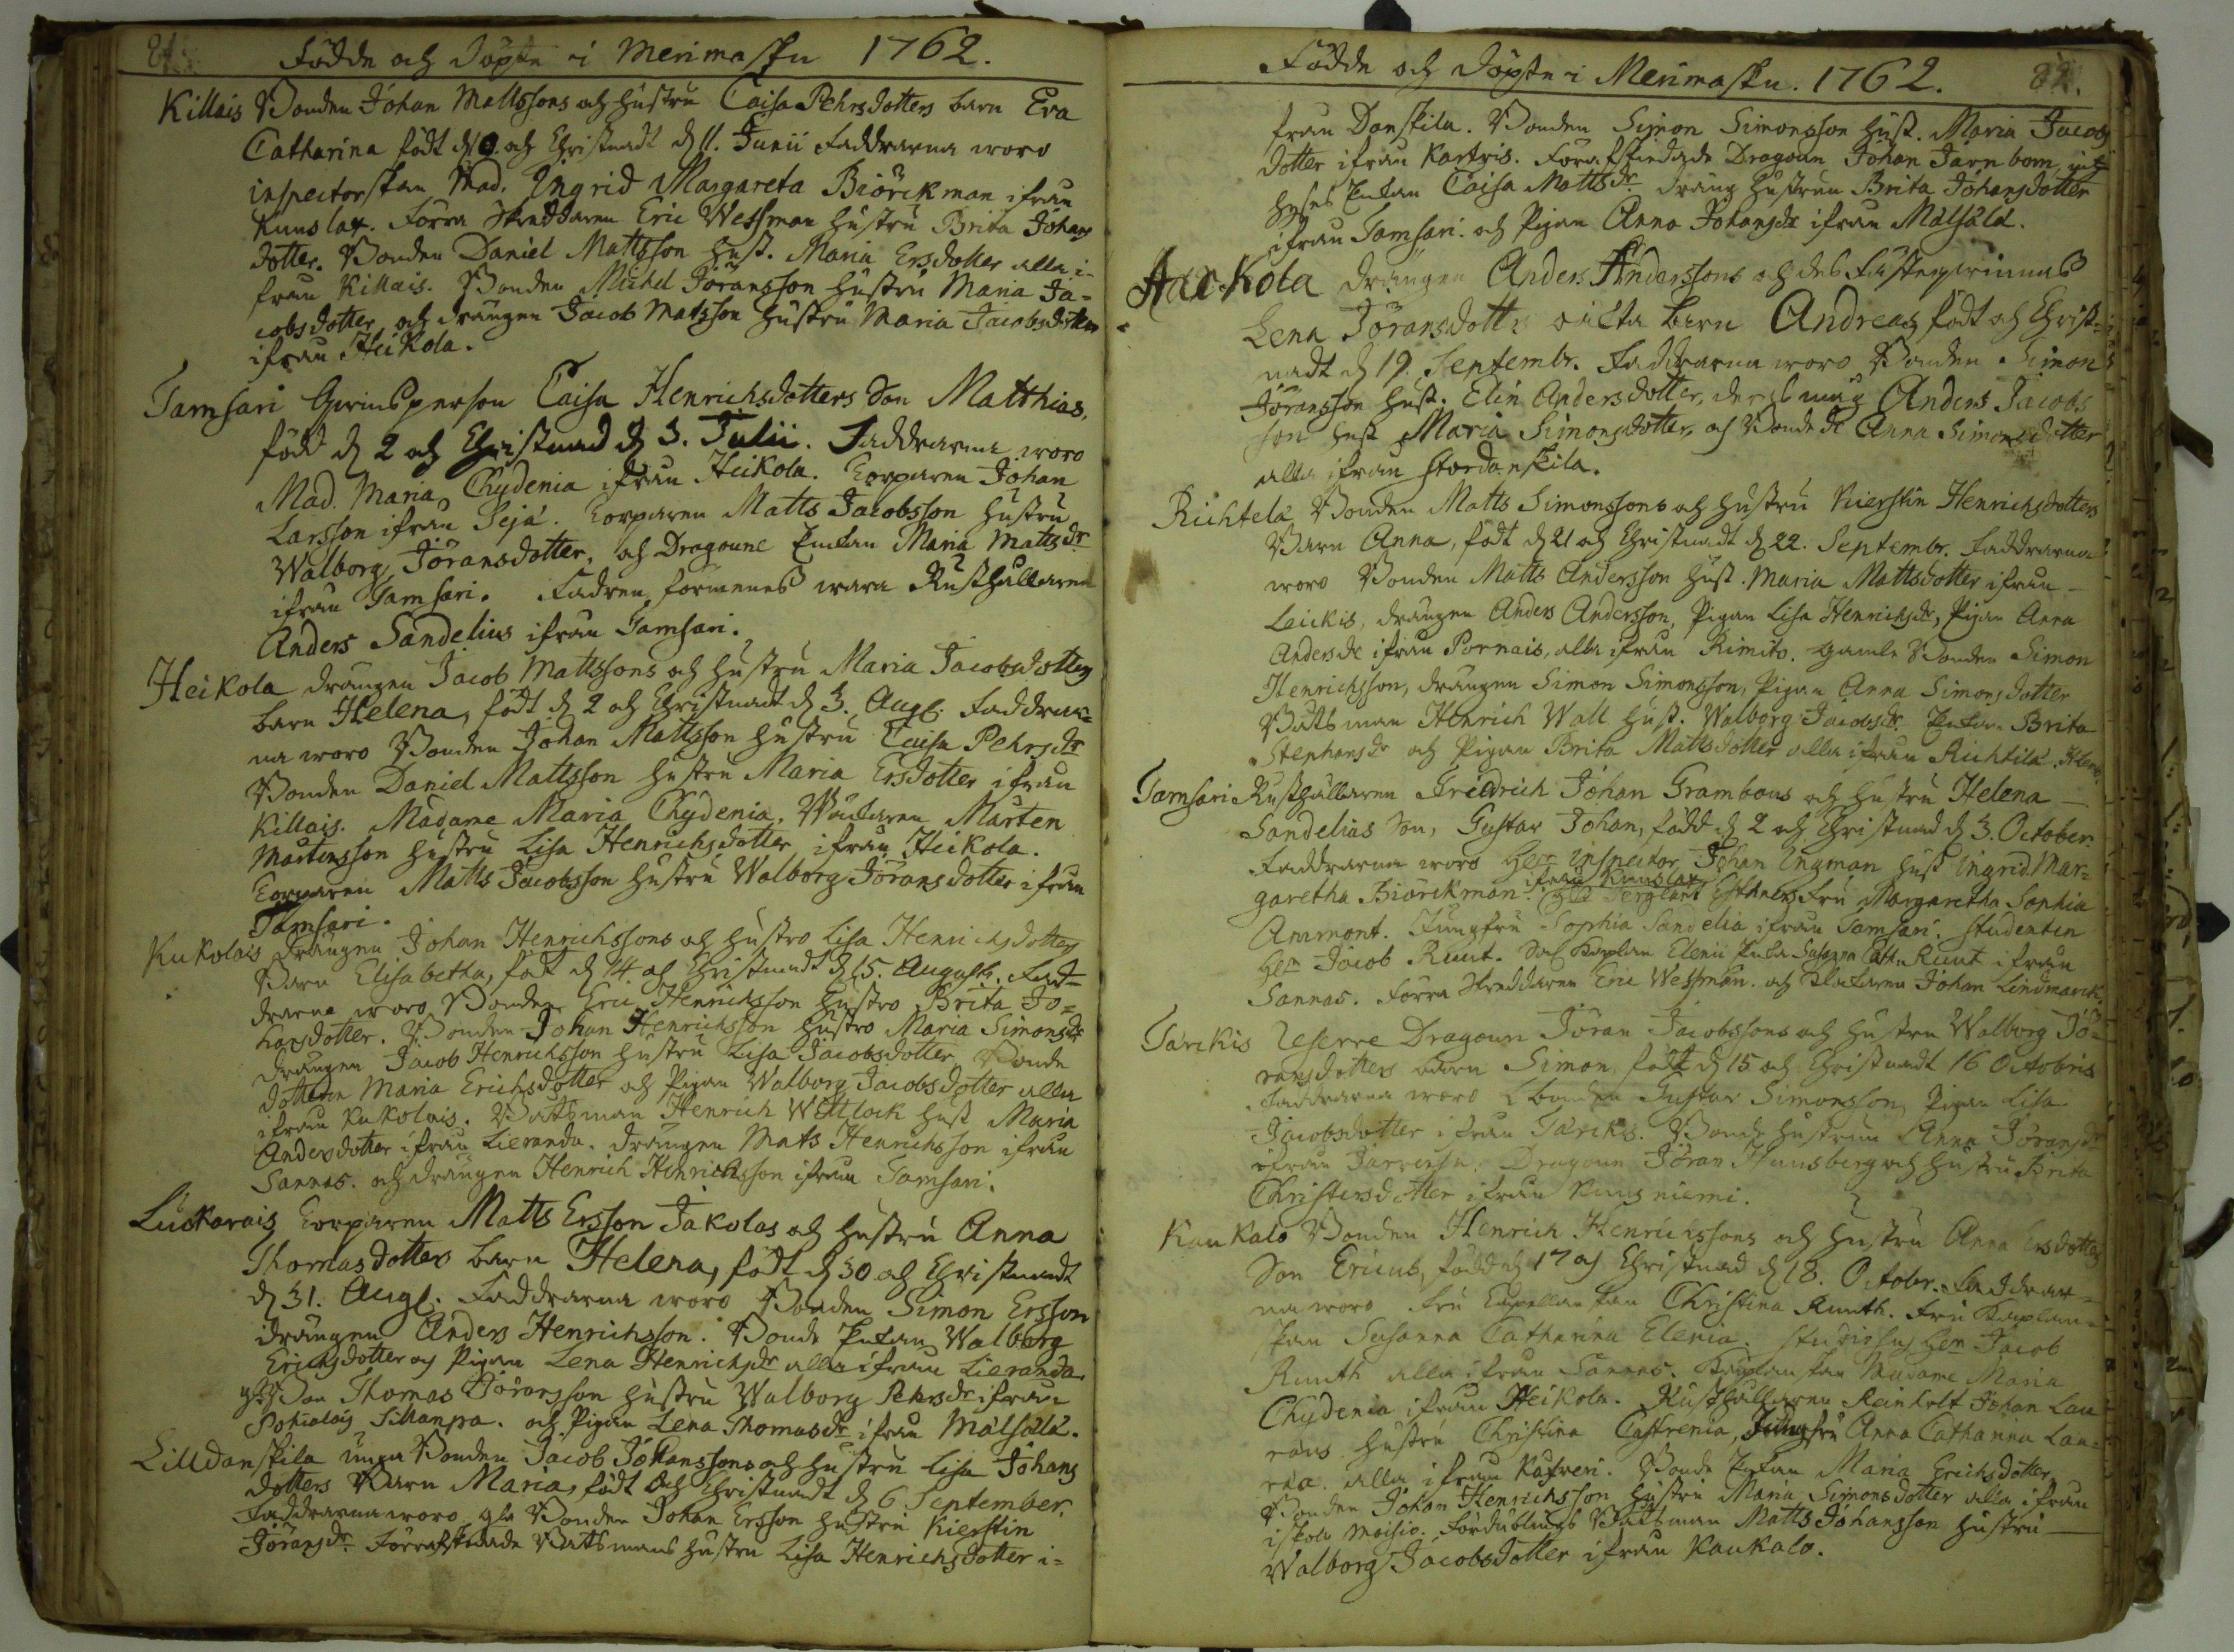 81.
Födde och Döpte i Merimasku 1762.
Killais Bonden Johan Mattssons och hustru Caisa Pehrsdotters barn Eva
Catharina födt d och Christnadt d 11. Junii Faddrarna woro
inspectorskan Mad. Ingrid Margareta Biörckman ifrån
Kunslax. Förra Skreddaren Eric Wessman hustru Brita Johans
dotter. Bonden Daniel Mattsson Hust. Maria Ersdotter alla i-
från Killais. Bonden Michel Jöransson hustru Maria Ja-
cobsdotter och drängen Jacob Matsson hustru Maria Jacobsdotter
ifrån Heikola.
Tamsari Qwinsperson Caisa Henrichsdotters Son Matthias,
född d 2 och Christnad d 3. Julii. Faddrarna woro
Mad. Maria Chydenia ifrån Heikola. Torparen Johan
Larsson ifrån Seja. Torparen Matts Jacobsson hustru
Walborg Jöransdotter, och Dragoune Enkan Maria Mattsdr
ifrån Tamsari. Fadren förmenes wara Rusthållaren
Anders Sandelius ifrån Tamsari.
Heikola drängen Jacob Mattssons och hustru Maria Jacobsdotters
barn Helena, födt d 2 och Christnadt d 3. Aug. Faddrar-
na woro Bonden Johan Mattsson hustru Caisa Pehrsdr
Bonden Daniel Mattsson hustru Maria Ersdotter ifrån
Killais. Madame Maria Chydenia. Mårten
Mårtensson hustru Lisa Henrichsdotter ifrån Heikola.
Torparen Matts Jacobsson hustru Walborg Jöransdotter ifrån
Tamsari.
Kukolais drängen Johan Henrichssons och hustro Lisa Henrichsdotters
Barn Elisabetha, födt d 14 och Christnadt d 15. Augusti. Fad-
drarna woro Bonden Eric Henrichsson hustro Brita Jo-
hansdotter. Bonden Johan Henrichsson hustro Maria Simonsdr
drängen Jacob Henrichsson hustru Lisa Jacobsdotter, Bonde
dottren Maria Erichsdotter och Pigan Walborg Jacobsdotter alla
ifrån Kukolais. Båtsman Henrich Wittlock hust Maria
Andersdotter ifrån Lieranda. drängen Mats Henrichsson ifrån
Sannas. och drängen Henrich Henrichsson ifrån Tamsari.
Luckarais Torparen Matts Ersson Jakolas och hustru Anna
Thomasdotters barn Helena, födt d 30 och Christnadt
d 31. Aug. Faddrarna woro Bonden Simon Ersson
drängen Anders Henrichsson. Bonde Enkan Walborg
Erichsdotter och Pigan Lena Henrichsdr alla ifrån Lieranda.
Thomas Jöransson hustru Walborg Pehrsdr ifrån
Pohialais Sillanpä. och Pigan Lena Thomasdr ifrån Målsälä.
Lilldanskila unga Bonden Jacob Johanssons och hustru Lisa Johans
dotters Barn Maria, födt och Christnadt d 6 September.
Faddrarna woro gla Bonden Johan Ersson hustru Kierstin
Jöransdr. Förrafskedade Båtsmans hustru Lisa Henrichsdotter i-
Födde och Döpte i Merimasku. 1762.
82.
från Danskila. Bonden Simon Simonsson Hust. Maria Jacobs
dotter ifrån Karfvis. Förafskedade Dragoun Johan Järnbom,
Enkan Caisa Mattsdr. dräng hustrun Brita Johansdotter
ifrån Tamsari. och Pigan Anna Johansdr ifrån Målsälä.
Häckola drängen Anders Anderssons och des Fästeqwinnas
Lena Jöransdotters oäckta barn Andreas, födt och Christ-
nadt d 19. Septembr. Faddrarna woro Bonden Simon
Jöransson Hust. Elin Andersdotter, Anders Jacobs
son Hust Maria Simonsdotter, och Bonde dr Anna Simonsdotter
alla ifrån Stordanskila.
Richtelä Bonden Matts Simonssons och hustru Kierstin Henrichsdotters
Barn Anna, födt d 21 och Christnadt d 22. Septembr. Faddrarna
woro Bonden Matts Andersson Hust. Maria Mattsdotter ifrån
Laickis, drängen Anders Andersson, Pigan Lisa Henrichsdr, Pigan Anna
Andersdr ifrån Pornais, alla ifrån Rimito. gamle Bonden Simon
Henrichsson, drängen Simon Simonsson, Pigan Anna Simonsdotter
Båtsman Henrich Wall Hust. Walborg Jacobsdr. Enkan Brita
Stephansdr och Pigan Brita Mattsdotter alla ifrån Richtilä.
Tamsari Rusthållaren Friedrich Johan Grambous och hustru Helena
Sandelias Son, Gustav Johan, född d 2 och Christnad d 3. October.
Faddrarna woro Herr inspector Johan Ingman Hust Ingrid Mar-
garetha Biörckman ifrån Kunslax. Sergeant Esthners Fru Margaretha Sophia
Ammont. Jungfru Sophia Sandelia ifrån Tamsari. Studenten
Hern Jacob Ruut. Sal Kaplan Elenii Enka Susanna Cath. Ruut ifrån
Sannas. Förra Skreddaren Eric Wessman. och Johan Lindmarck.
Tarckis Reserve Dragoun Jöran Jacobssons och hustru Walborg Jö-
ransdotters barn Simon födt d 15 och Christnadt 16 Octobris
Faddrarna woro bonden Gustav Simonsson, Pigan Lisa
Jacobsdotter ifrån Tarckis. Bonde hustrun Anna Jöransdr
ifrån Jarvensu. Dragoun Jöran Hunsberg och hustru Brita
Christersdotter ifrån Kungniemi.
Kaukalo Bonden Henrich Henrichssons och hustru Anna Ersdotters
Son Ericus, född d 17 och Christnad d 18. Octobr. Faddrar-
na woro Fru Capellanskan Christina Ruuth. Fru Kaplan-
skan Susanna Catharina Elenia. Studiosus Hern Jacob
Ruuth alla ifrån Sannas. Kaplanskan Madame Maria
Chydenia ifrån Heikola. Rusthållaren Reinholt Johan Lau
raus hustru Christina Castrenia, Jungfru Anna Catharina Lau-
rea. alla ifrån Kufveri. Bonde Enkan Maria Erichsdotter
Bonden Johan Henrichsson hustru Maria Simonsdotter alla ifrån
iskola moisio. Fördublings Båtsman Matts Johansson hustru
Walborg Jacobsdotter ifrån Kaukalo.